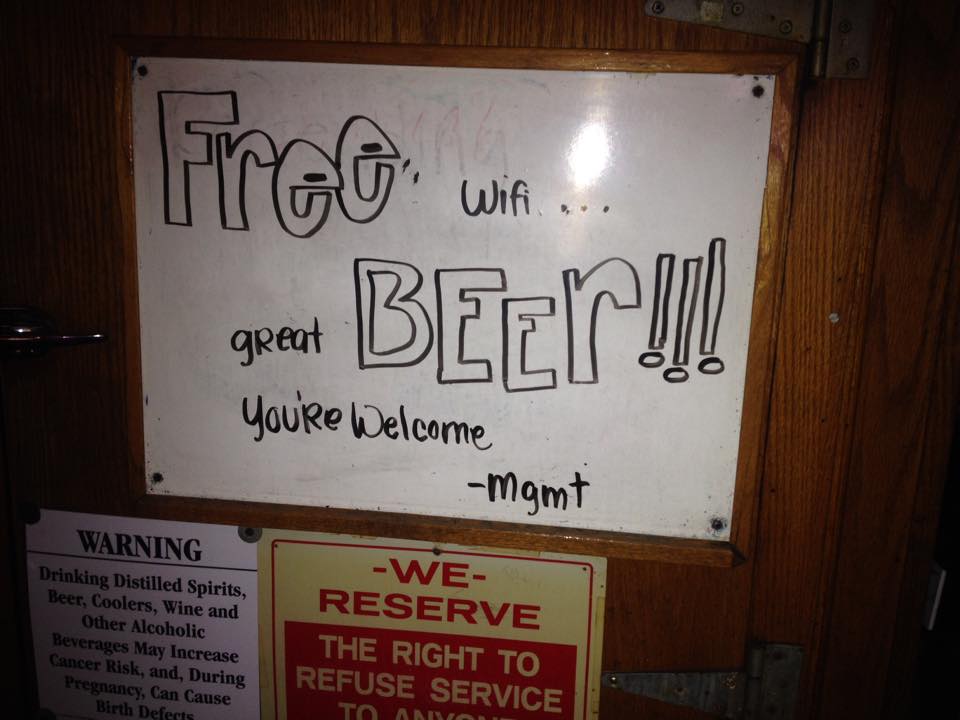 Free wifi ....
great BEEr!!!
You're Welcome
-Mgmt
WARNING
Drinking Distilled Spirits,
Beer, Coolers, Wine and
Other Alcoholic
Beverages May Increase
Cancer Risk, and, During
Pregnancy, Can Cause
Birth Defects
-WE-
RESERVE
THE RIGHT TO
REFUSE SERVICE
TO ANYONE